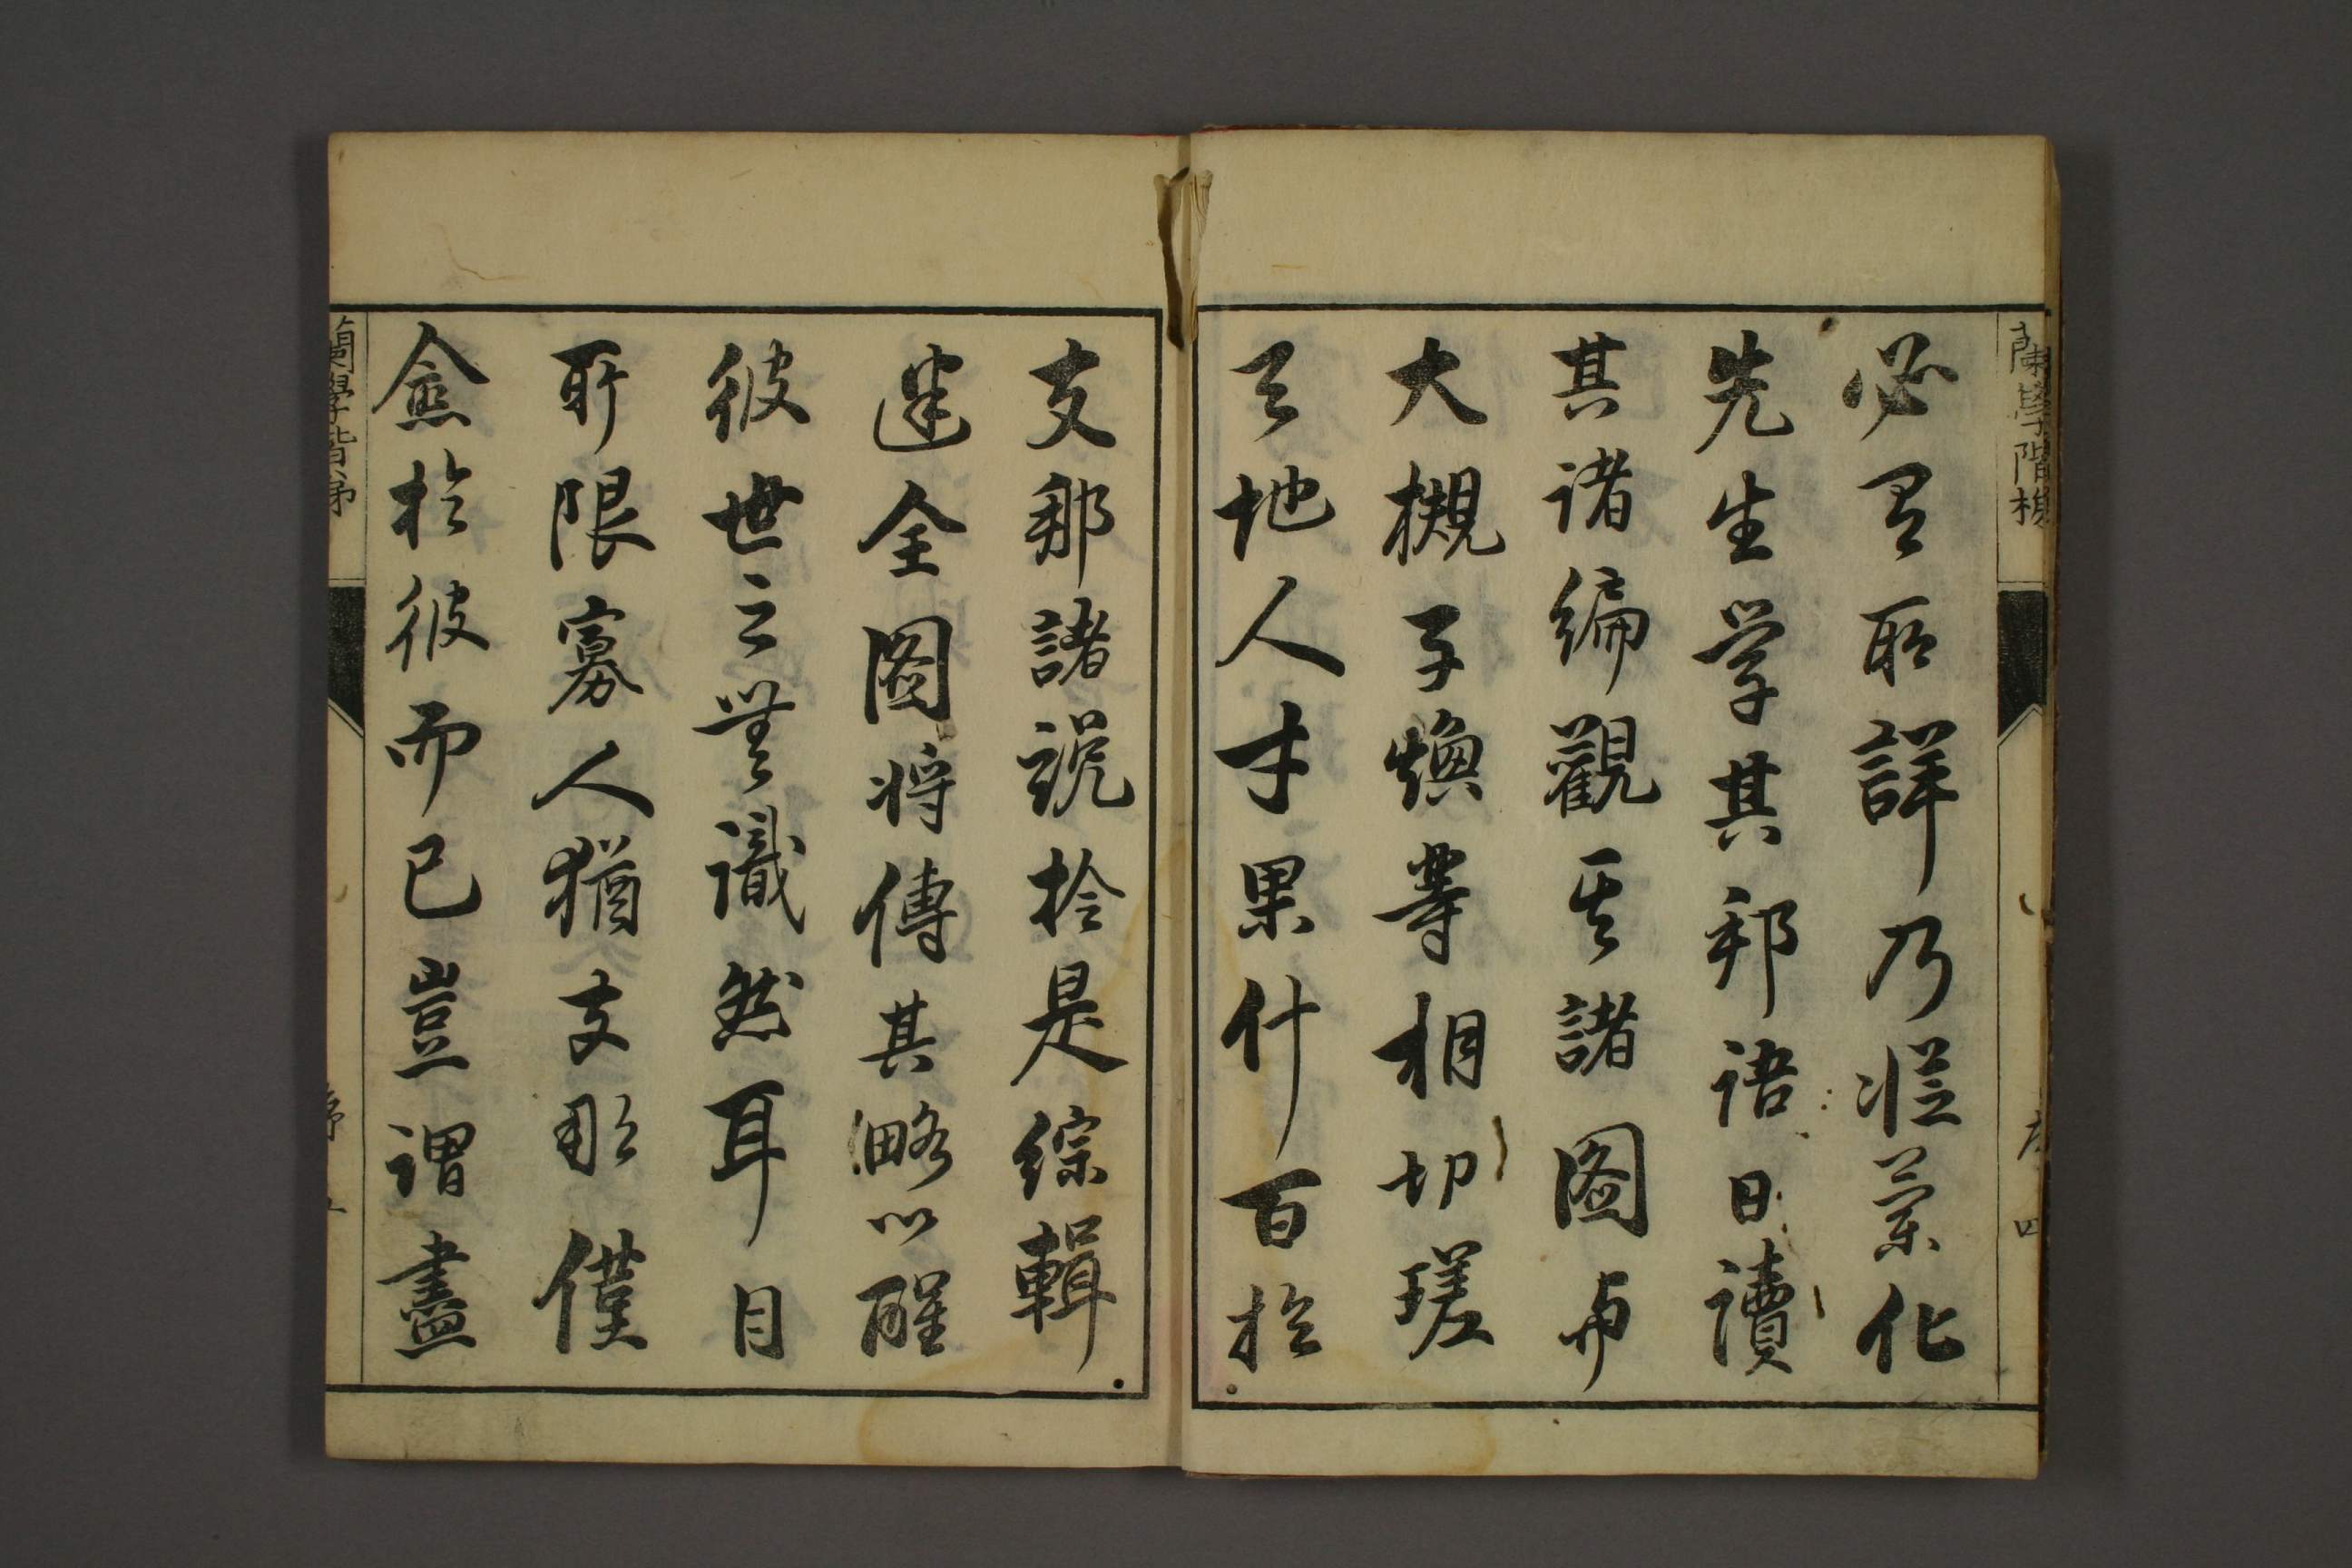 蘭學階梯
序 四
必有所詳乃從蘭化
先生学其邦語日讀
其諸編觀其諸圖与
大槻子煥等相切瑳
天地人才果什百於
支那諸說於是綜輯
述全圖将傳其略以醒
彼世之無識然耳目
所限寡人猶支那僅
僉於彼而已豈謂盡
蘭學階梯
序